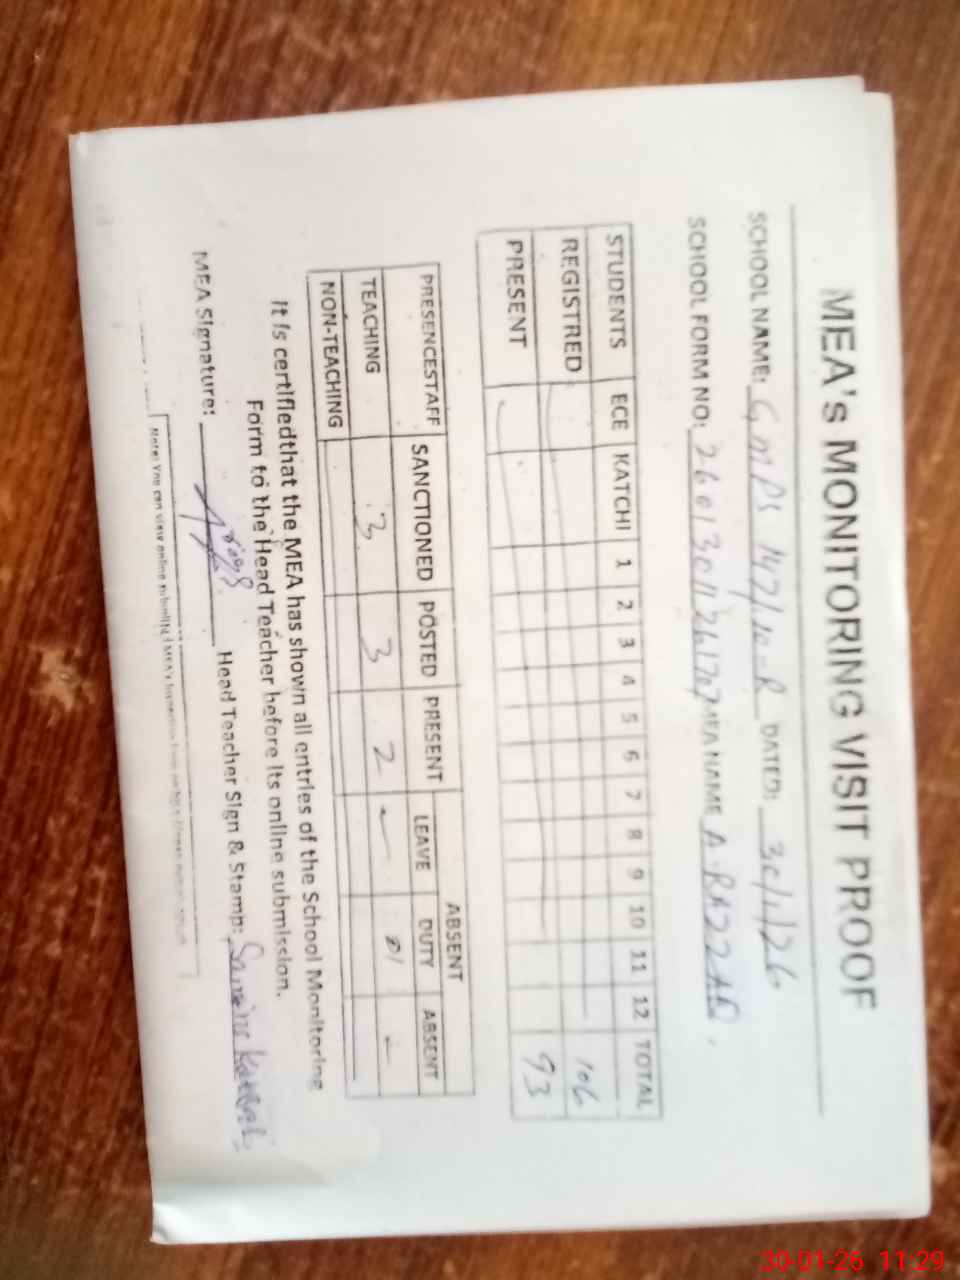 MEA's MONITORING VISIT PROOF
SCHOOL NAME: GMPS 147/10-R DATED: 30/1/26
SCHOOL FORM NO: MEA NAME A.RAZZAQ
STUDENTS ECE KATCHI 1 2 3 4 5 6 7 8 9 10 11 12 TOTAL
REGISTRED 106
PRESENT 93
ABSENT
PRESENCESTAFF SANCTIONED POSTED PRESENT LEAVE DUTY ABSENT
TEACHING 3 3 2 - 01 -
NON-TEACHING
It is certifiedthat the MEA has shown all entries of the School Monitoring
Form to the Head Teacher before its online submission.
MEA Signature: Head Teacher Sign & Stamp:
Note: You can view online
30-01-26 11:29